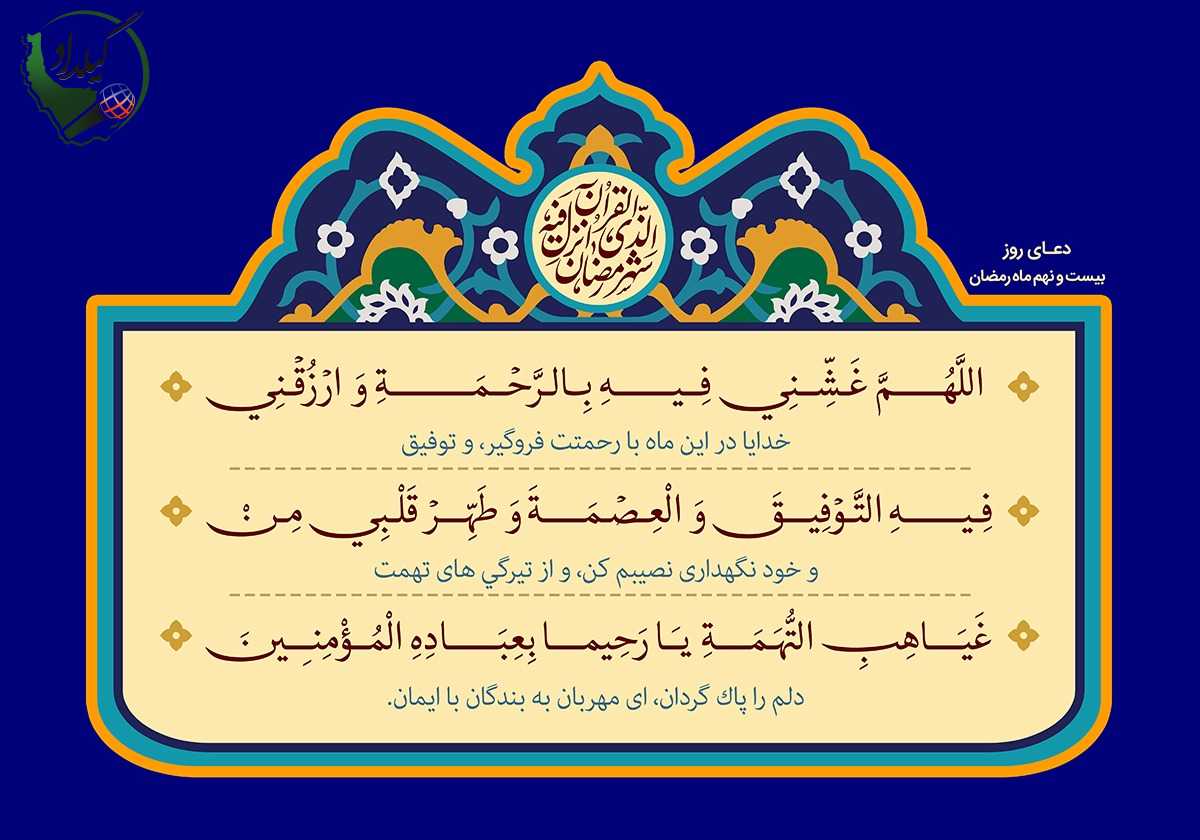 گیلداد
شهر رمضان الذی انزل فیه القرآن
دعـای روز
بیست و نهم ماه رمضان
اللَّهُمَّ غَشِّنِي فِيهِ بِالرَّحْمَةِ وَ ارْزُقْنِي
خدایا در این ماه با رحمتت فروگیر، و توفیق
فِيهِ التَّوْفِيقَ وَ الْعِصْمَةَ وَ طَهِّرْ قَلْبِي مِنْ
و خود نگهداری نصیبم کن، و از تیرگي های تهمت
غَيَاهِبِ التُّهَمَةِ يَا رَحِيما بِعِبَادِهِ الْمُؤْمِنِينَ
دلم را پاك گردان، ای مهربان به بندگان با ایمان.